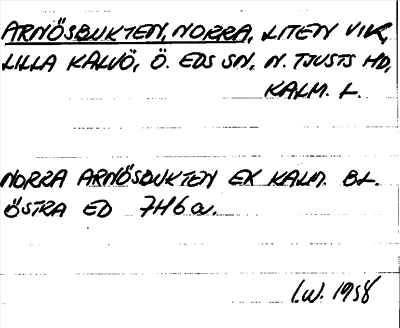 ARNÖSBUKTEN, NORRA, LITEN VIK,
LILLA KALVÖ, Ö. EDS SN, N. TJUSTS HD,
KALM. L.
NORRA ARNÖSBUKTEN EK KALM. BL.
ÖSTRA ED 7H6a.
I.W. 1958